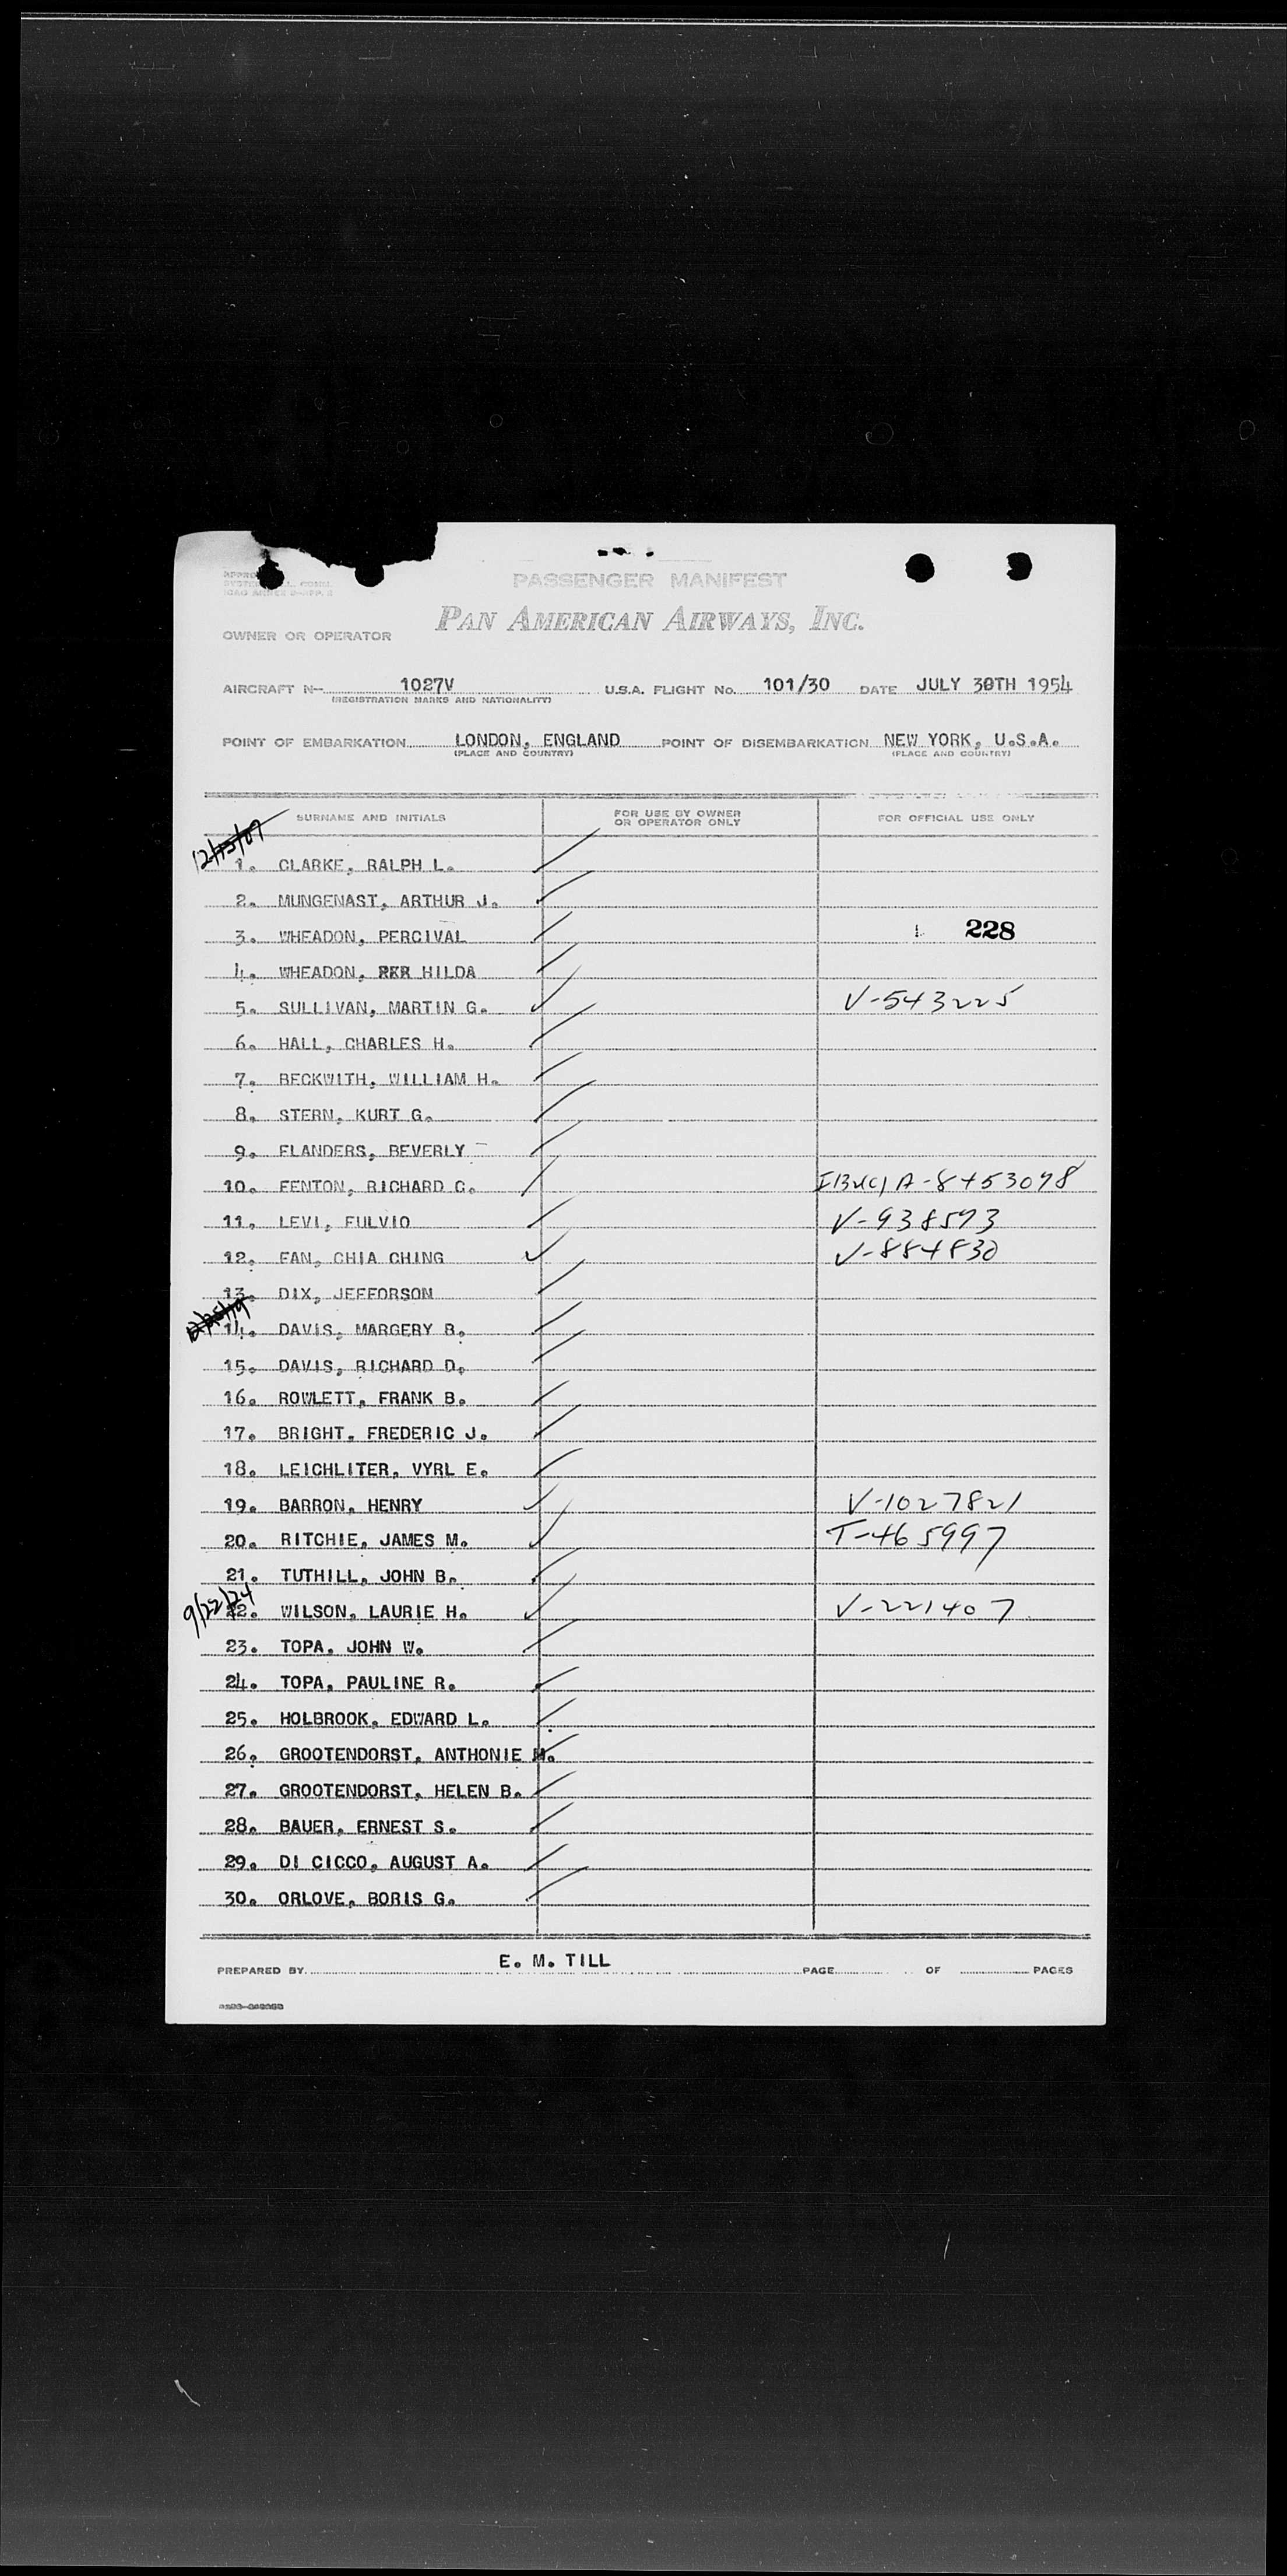 PASSENGER MANIFEST
PAN AMERICAN AIRWAYS, INC.
OWNER OR OPERATOR
AIRCRAFT N- 1027V U.S.A. FLIGHT No. 101/30 DATE JULY 30TH 1954
(REGISTRATION MARKS AND NATIONALITY)
POINT OF EMBARKATION LONDON, ENGLAND POINT OF DISEMBARKATION NEW YORK, U.S.A.
(PLACE AND COUNTRY) (PLACE AND COUNTRY)
SURNAME AND INITIALS FOR USE BY OWNER OR OPERATOR ONLY FOR OFFICIAL USE ONLY
12/13/07
1. CLARKE, RALPH L.
2. MUNGENAST, ARTHUR J.
3. WHEADON, PERCIVAL 228
4. WHEADON, HILDA
5. SULLIVAN, MARTIN G. V-543225
6. HALL, CHARLES H.
7. BECKWITH, WILLIAM H.
8. STERN, KURT G.
9. FLANDERS, BEVERLY
10. FENTON, RICHARD G. A-8453098
11. LEVI, FULVIO V-938593
12. FAN, CHIA CHING V-884830
13. DIX, JEFFORSON
14. DAVIS, MARGERY B.
15. DAVIS, RICHARD D.
16. ROWLETT, FRANK B.
17. BRIGHT, FREDERIC J.
18. LEICHLITER, VYRL E.
19. BARRON, HENRY V-1027821
20. RITCHIE, JAMES M. T-465997
21. TUTHILL, JOHN B.
9/22/24
22. WILSON, LAURIE H. V-221407
23. TOPA, JOHN W.
24. TOPA, PAULINE R.
25. HOLBROOK, EDWARD L.
26. GROOTENDORST, ANTHONIE M.
27. GROOTENDORST, HELEN B.
28. BAUER, ERNEST S.
29. DI CICCO, AUGUST A.
30. ORLOVE, BORIS G.
PREPARED BY E. M. TILL PAGE OF PAGES